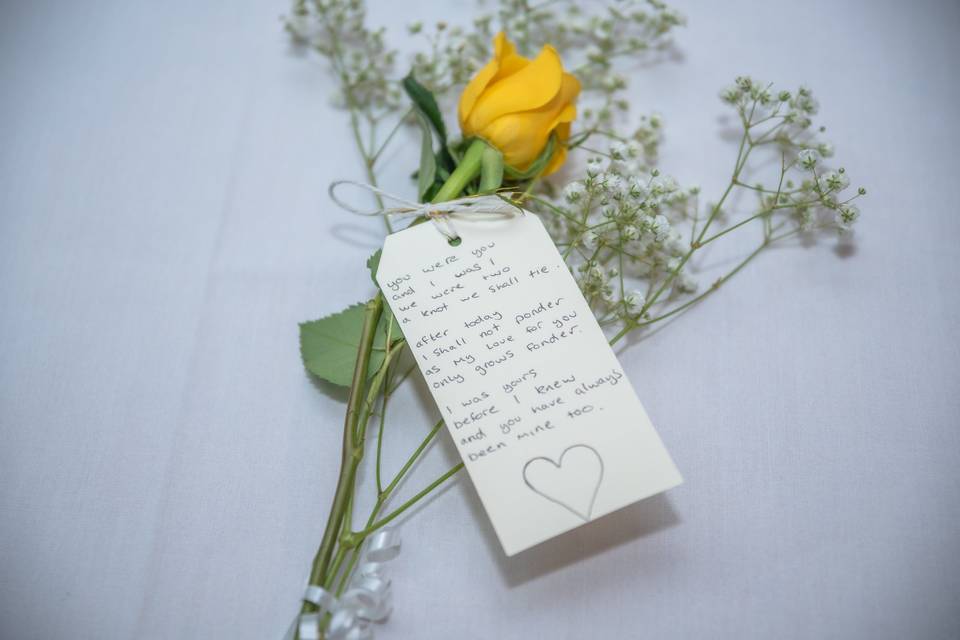 you were you
and I was I
we were two
a knot we shall tie.
after today
I shall not ponder
as my love for you
only grows fonder.
I was yours
before I knew
and you have always
been mine too.